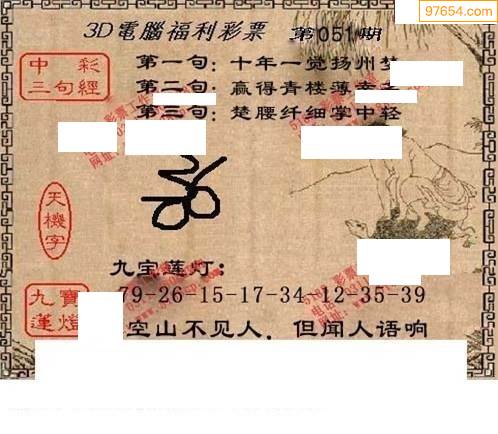 97654.com
3D電腦福利彩票 第051期
中彩三句經
第一句：十年一觉扬州梦
第二句：赢得青楼薄
第三句：楚腰纤细掌中轻
天機字
九宝莲灯：
九寶蓮燈
79-26-15-17-34 12-35-39
空山不见人，但闻人语响